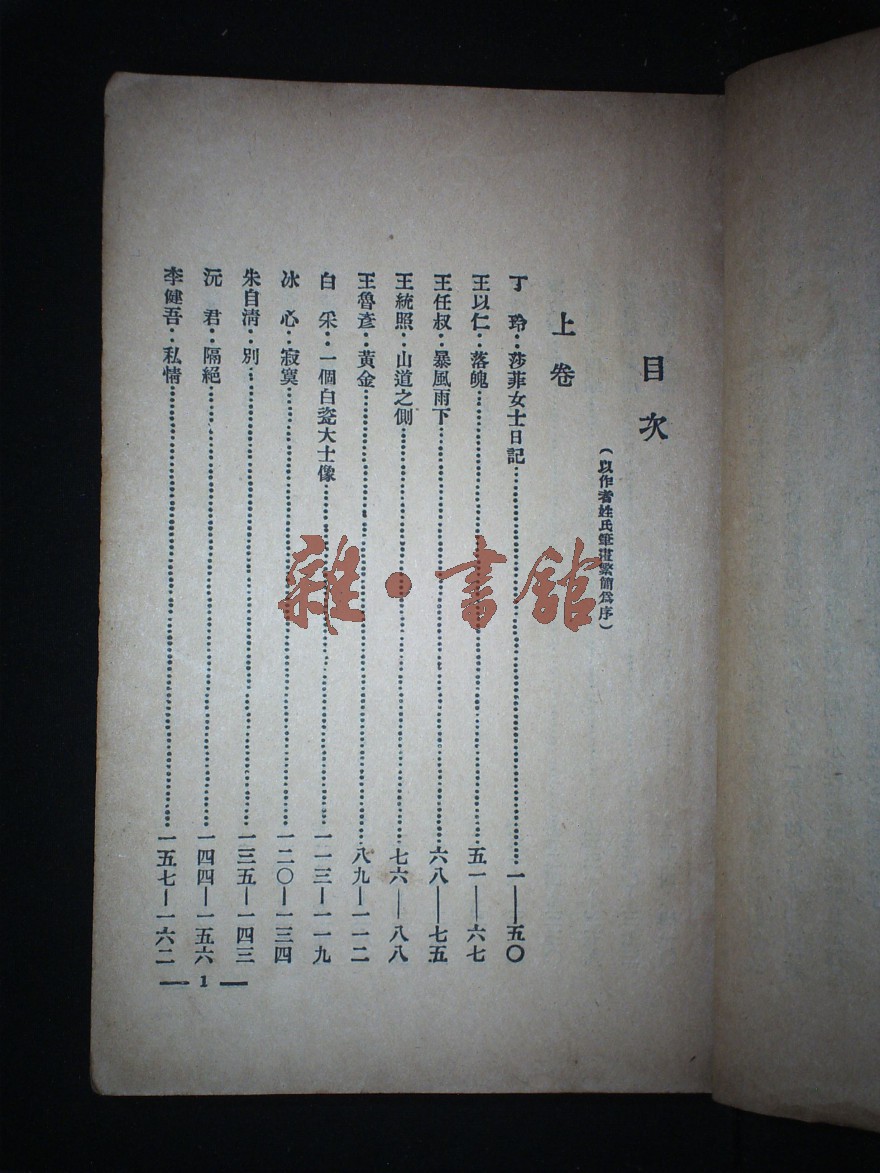 目次
（以作者姓氏筆畫繁簡爲序）
上卷
丁　玲‥莎菲女士日記⋯⋯⋯⋯一——五〇
王以仁‥落魄⋯⋯⋯⋯五一——六七
王任叔‥暴風雨下⋯⋯⋯⋯六八——七五
王統照‥山道之側⋯⋯⋯⋯七六——八八
王魯彥‥黃金⋯⋯⋯⋯八九—一一二
白　采‥一個白瓷大士像⋯⋯⋯⋯一一三—一一九
冰　心‥寂寞⋯⋯⋯⋯一二〇—一三四
朱自清‥別⋯⋯⋯⋯一三五—一四三
沅　君‥隔絕⋯⋯⋯⋯一四四—一五六
李健吾‥私情⋯⋯⋯⋯一五七—一六二
— 1 —
雜・書館